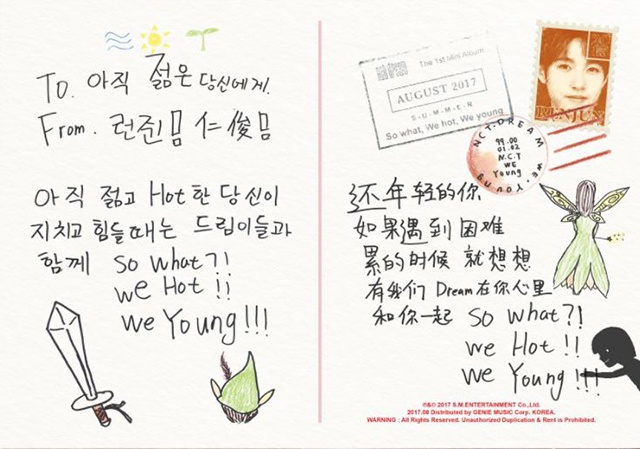 To. 아직 젊은 당신에게.
From. 런쥔 仁俊
아직 젊고 Hot한 당신이
지치고 힘들때는 드림이들과
함께 So What?!
we Hot !!
we Young !!!
The 1st Mini Album
AUGUST 2017
S-U-M-M-E-R
So what, We hot, We young
RENJUN
NCT DREAM WE YOUNG
99.00
01.02
N.C.T
WE
Young
还年轻的你
如果遇到困难
累的时候 就想想
有我们 Dream 在你心里
和你一起 So What?!
we Hot !!
we Young !!!
℗&© 2017 S.M.ENTERTAINMENT Co.,Ltd.
2017.08 Distributed by GENIE MUSIC Corp. KOREA.
WARNING : All Rights Reserved. Unauthorized Duplication & Rent is Prohibited.